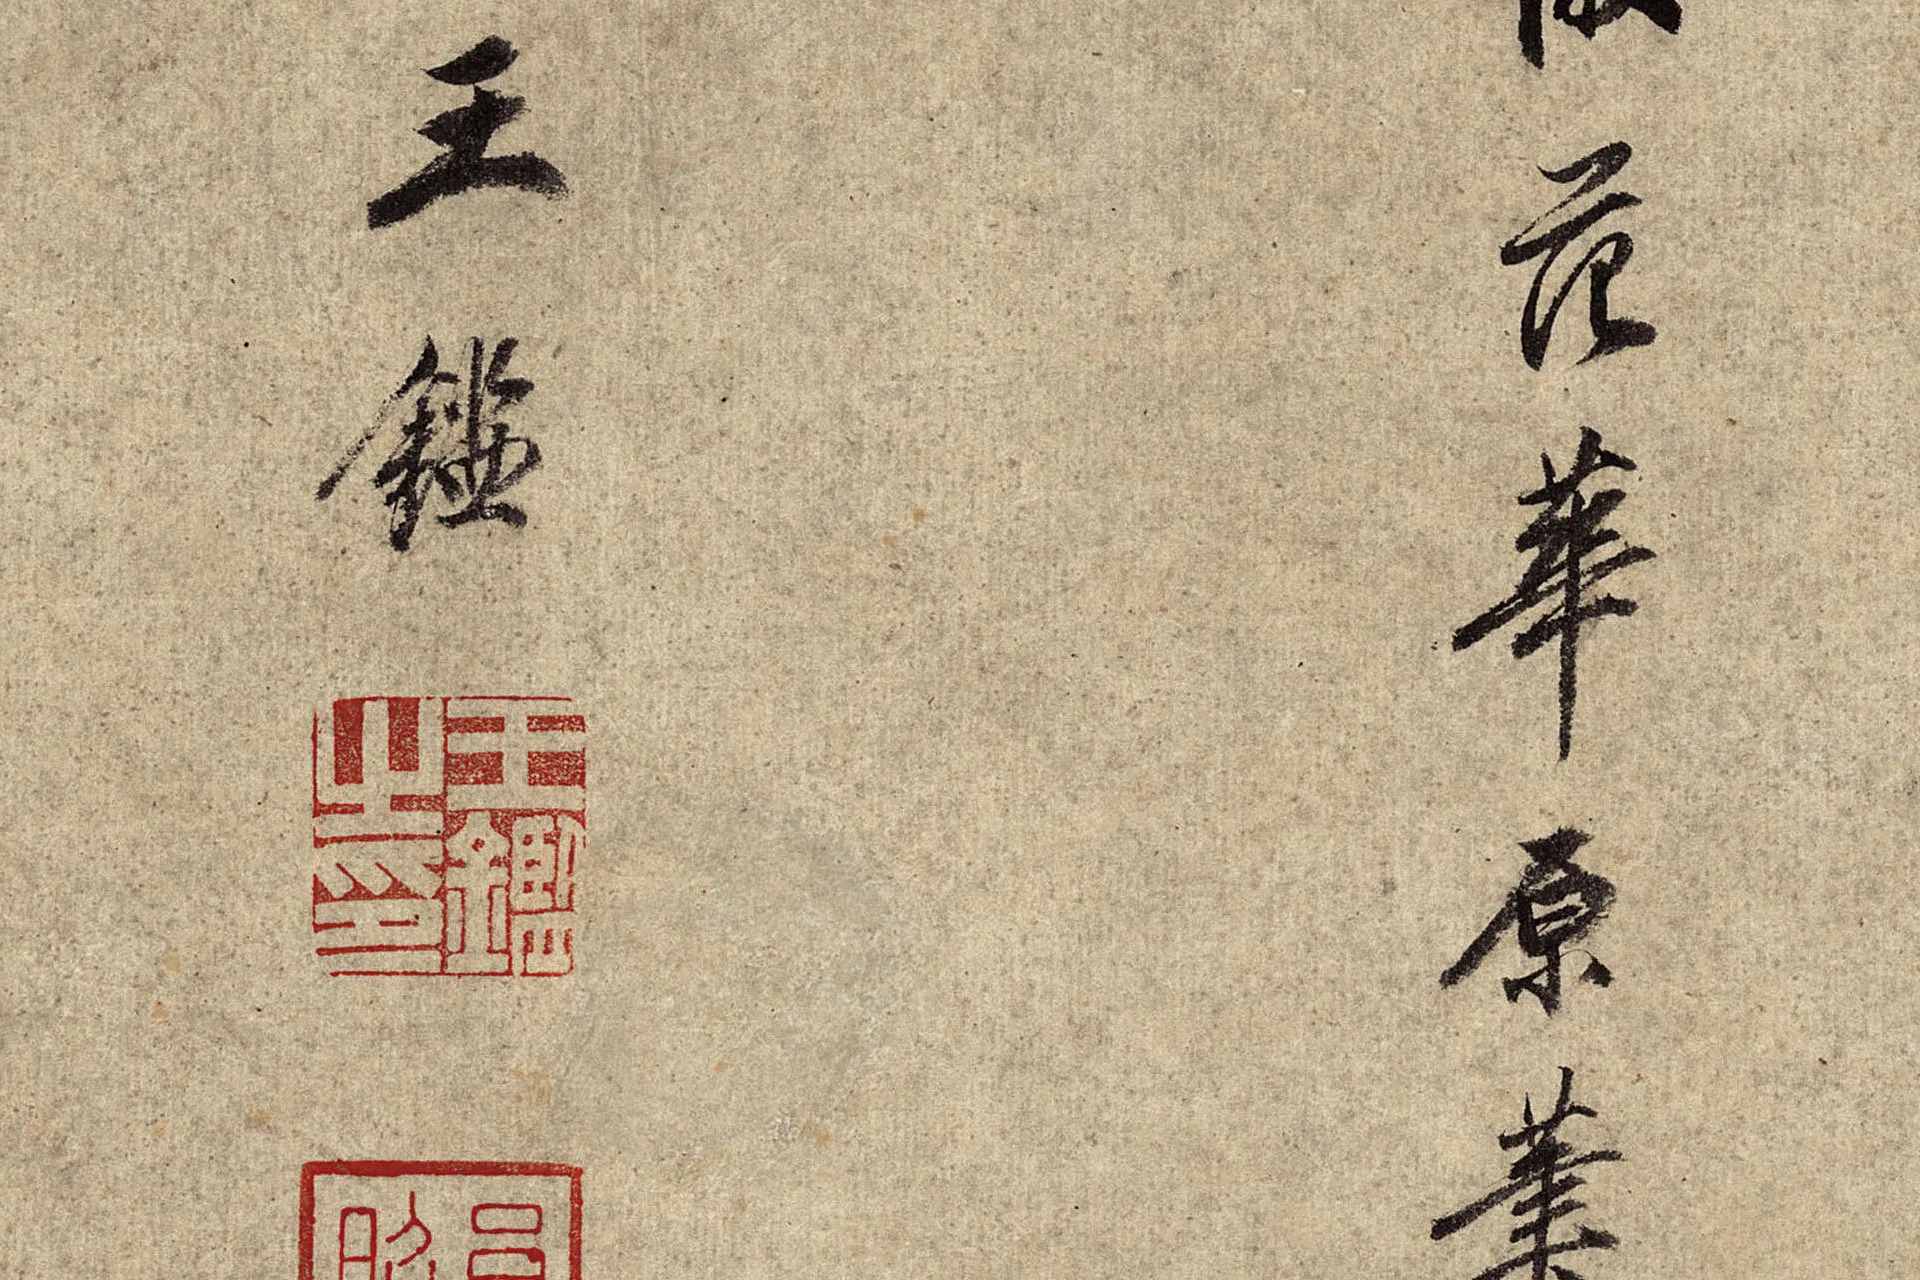 範華原葉
王鑑
王鑑之印